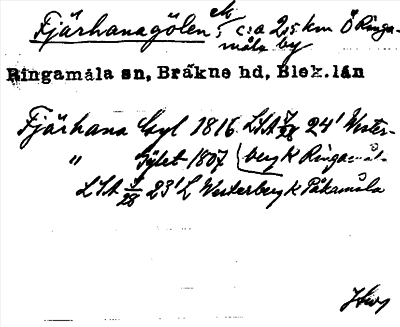 Fjärhanagölen ek, c:a 2,5 km Ö Ringa-
måla by
Ringamåla sn, Bräkne hd, Blek.län
Fjärhana Gyl 1816 LSA 24' Wester-
" Gylet 1807 (berg K Ringamål-
LSA 28 23' L Westerberg K Påkamåla